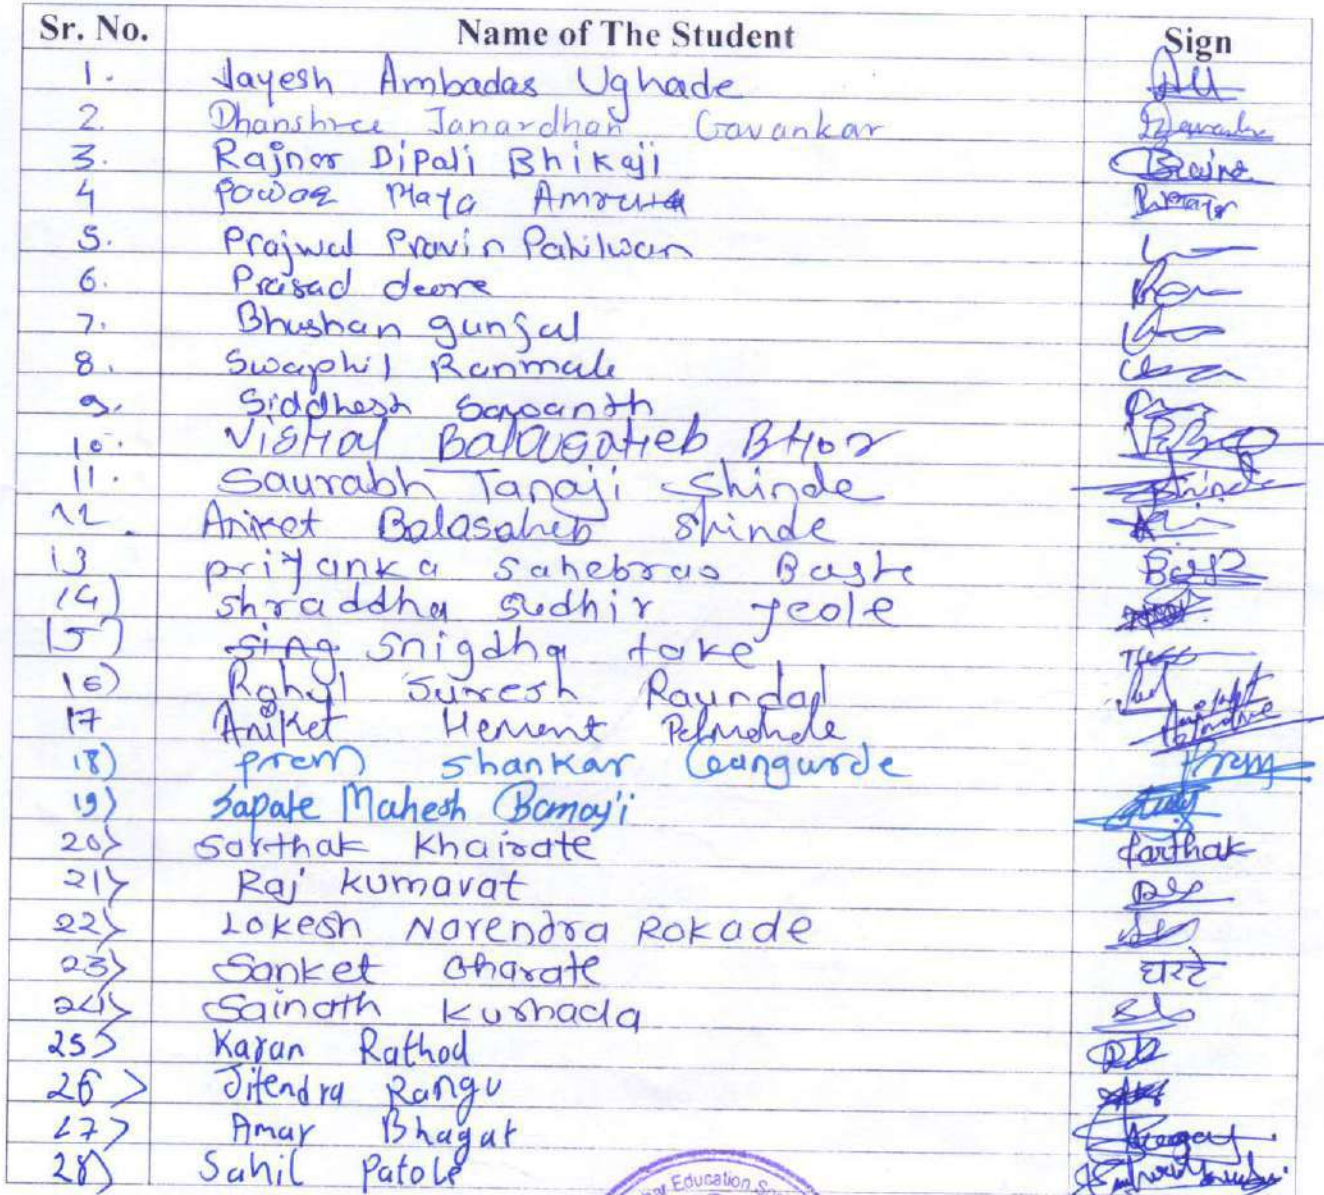 Sr. No. Name of The Student Sign
1. Jayesh Ambadas Ughade
2. Dhanshree Janardhan Gavankar
3. Rajnor Dipali Bhikaji
4 Pawar Maya
5. Prajwal Pravin Pahilwan
6. Prasad deore
7. Bhushan gunjal
8. Swaphil Ranmale
9. Siddhesh
10. Vishal Balasaheb Bhor
11. Saurabh Tanaji Shinde Shinde
12. Aniket Balasaheb Shinde
13 priyanka sahebrao Baste
14) shraddha sudhir yeole
15) snigdha take
16) Rahul Suresh Raundal
17 Aniket Hement
18) prem shankar Gangurde Prem
19) Sapate Mahesh
20) Sarthak Khairate Sarthak
21) Raj kumavat
22) Lokesh Narendra Rokade
23) Sanket Gharate घरटे
24) Sainath kurhada
25) Karan Rathod
26) Jitendra Rangu
27) Amar Bhagat
28) Sahil Patole
Education